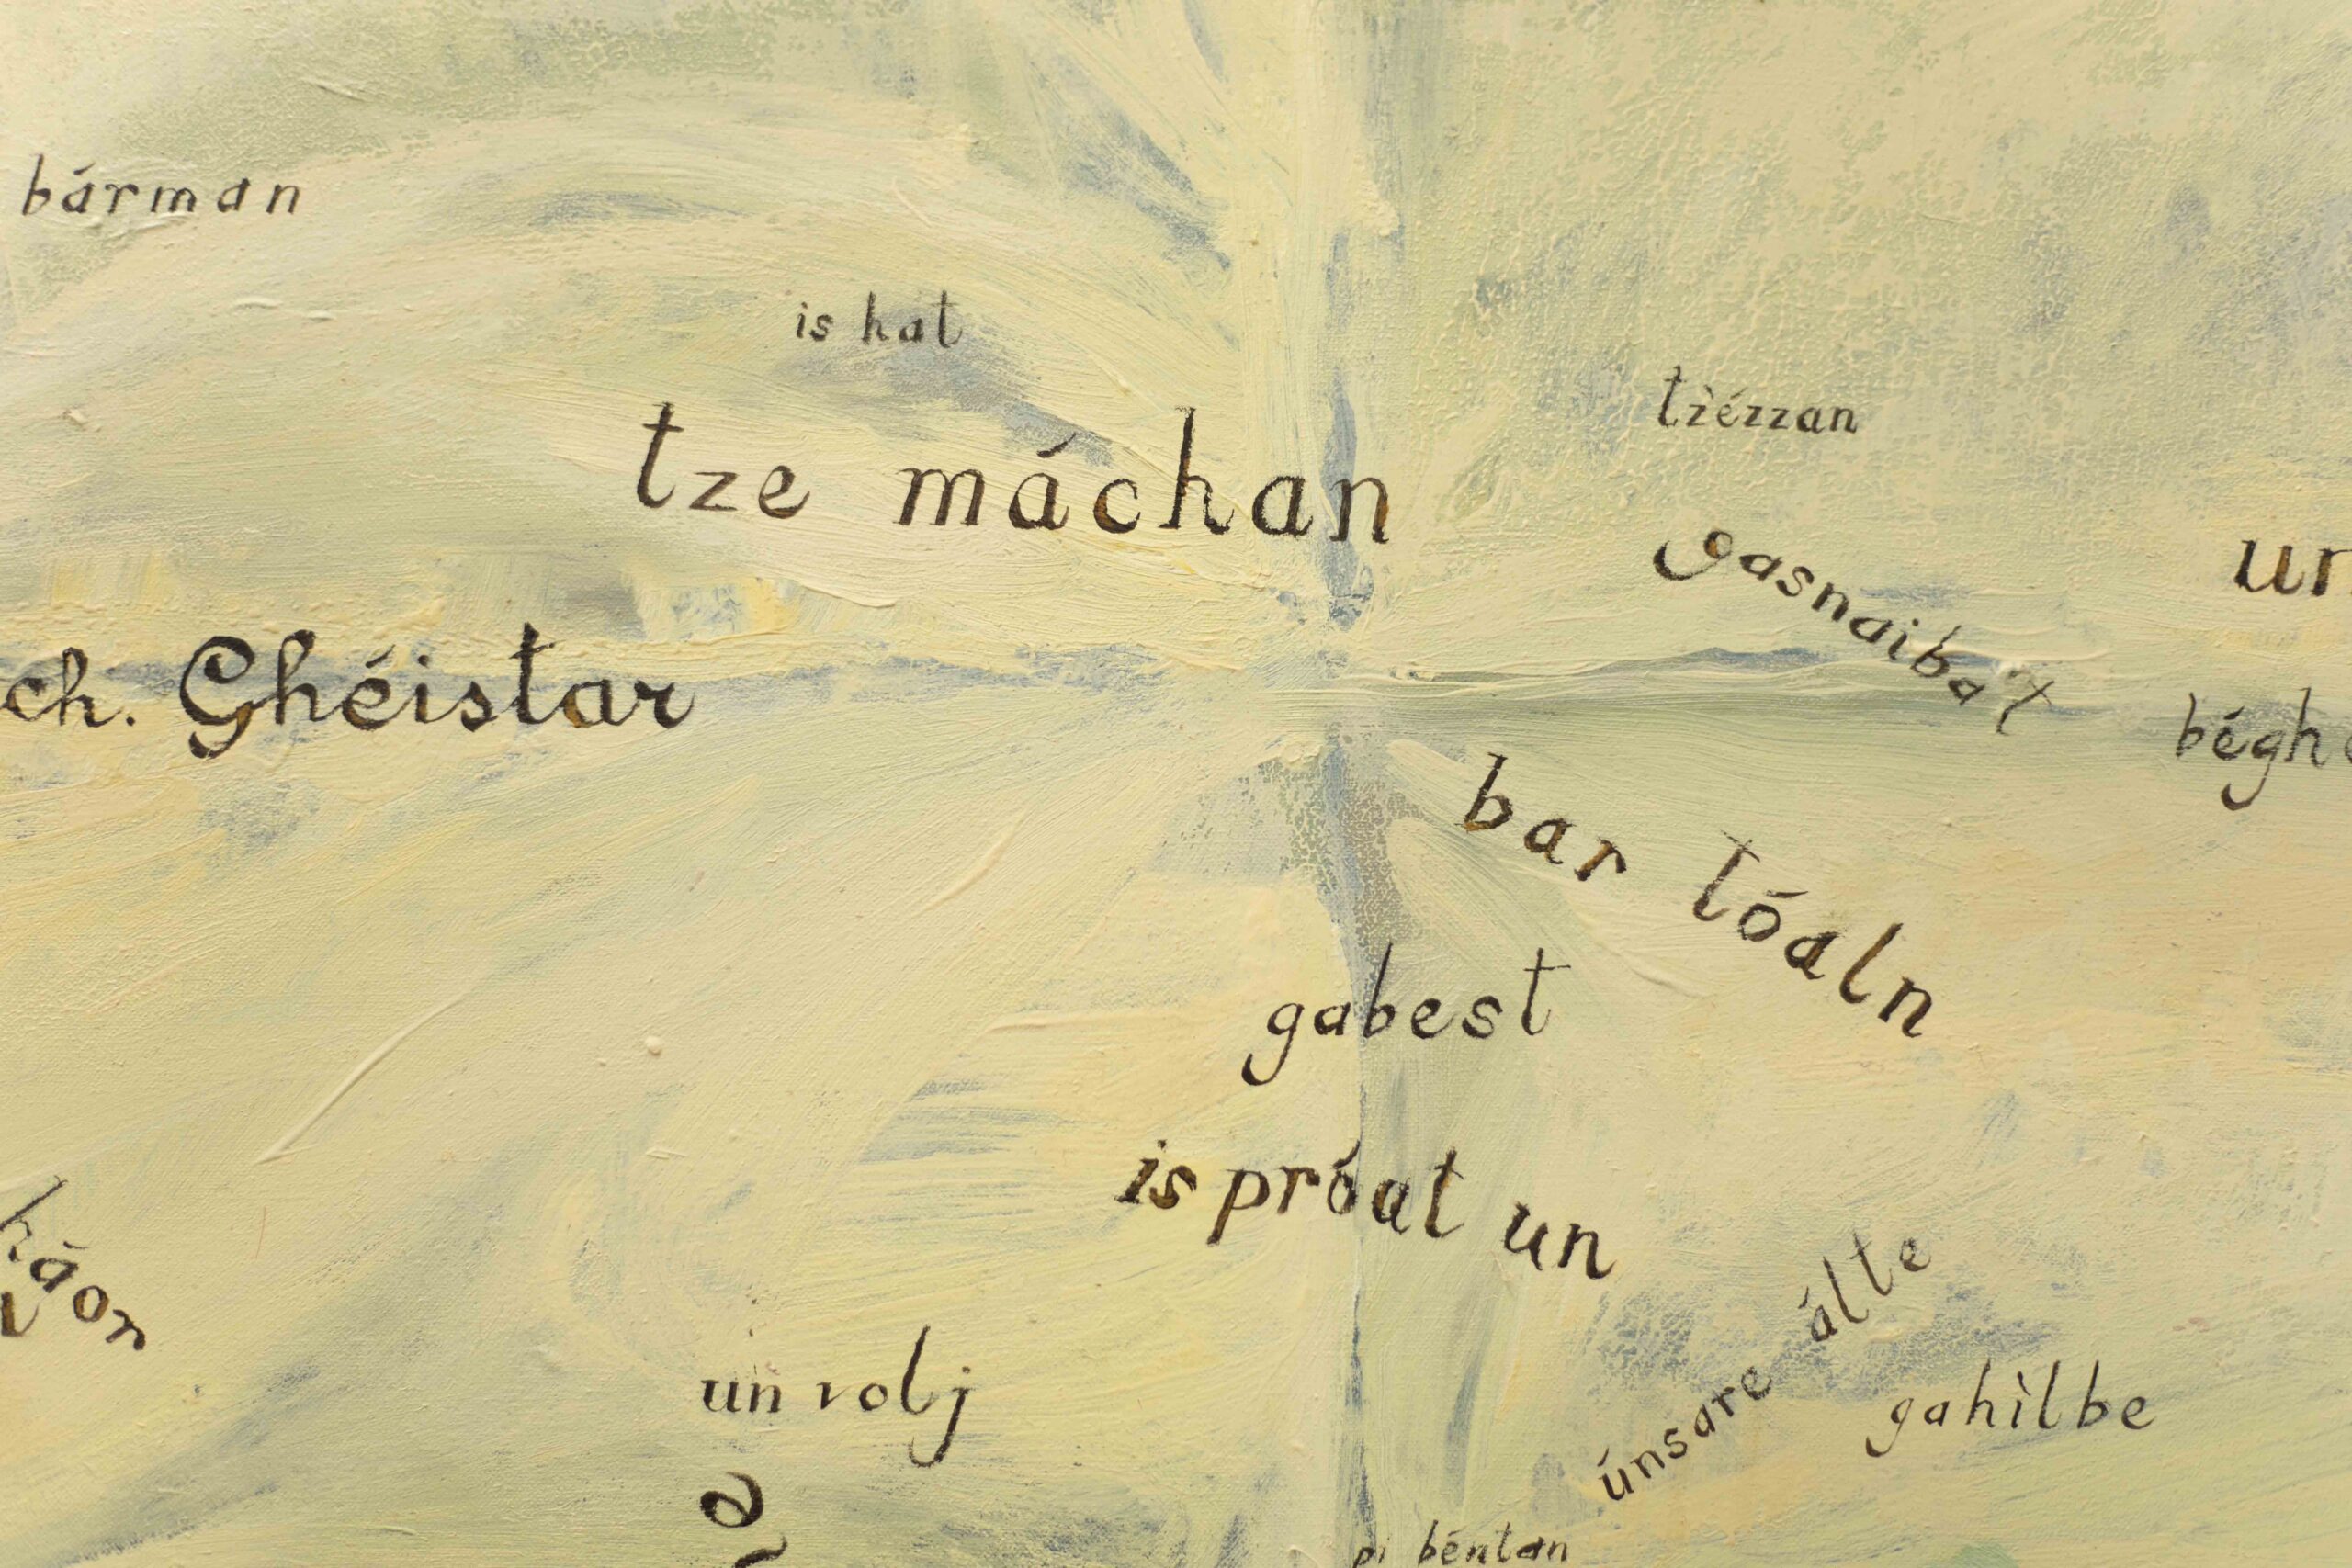 bárman
is hat
tze máchan
gasnaibat
ch. Ghéistar
bar tóaln
gabest
is próat un
háor
un volj
únsare álte
gahilbe
pi béntan